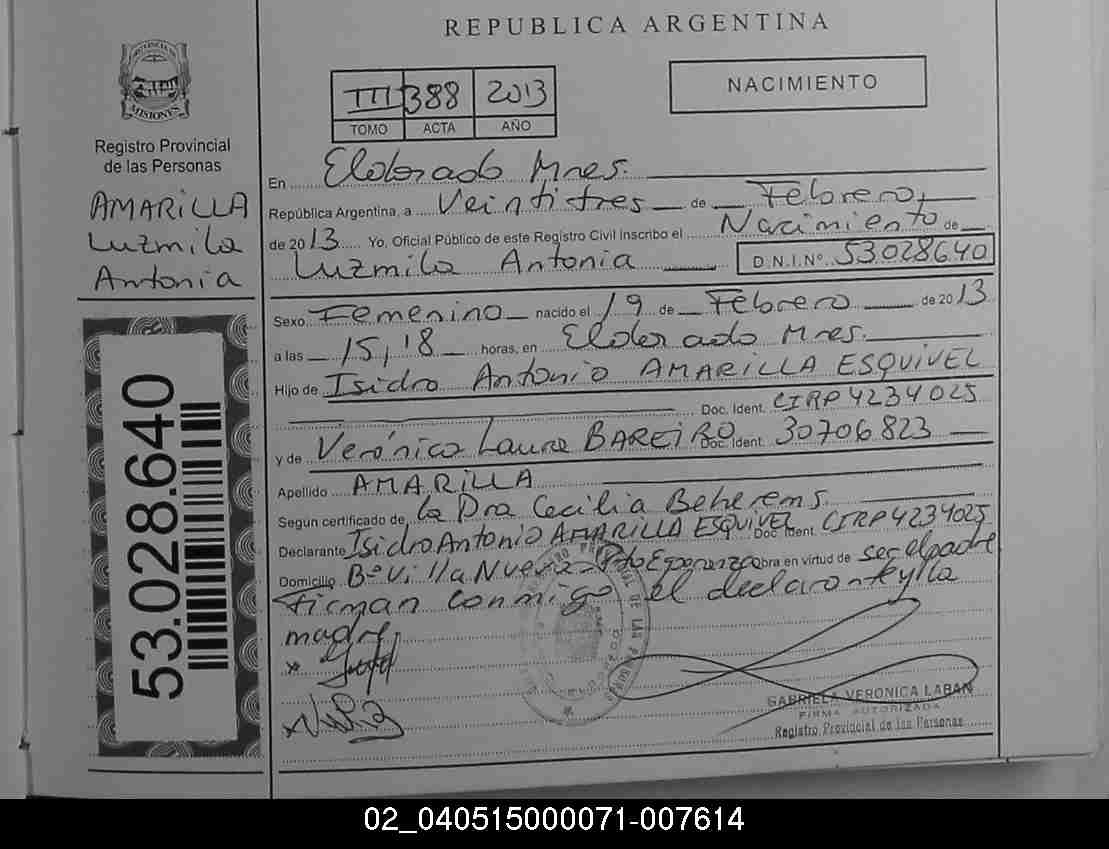 REPUBLICA ARGENTINA
PROVINCIA DE
MISIONES
Registro Provincial
de las Personas
AMARILLA
Luzmila
Antonia
53.028.640
III 388 2013
TOMO ACTA AÑO
NACIMIENTO
En Eldorado Mnes.
República Argentina, a Veintitres de Febrero,
de 2013 Yo, Oficial Público de este Registro Civil inscribo el Nacimiento de
Luzmila Antonia D.N.I.Nº 53028640
Sexo Femenino nacido el 19 de Febrero de 2013
a las 15,18 horas, en Eldorado Mnes.
Hijo de Isidro Antonio AMARILLA ESQUIVEL
Doc. Ident. CIRP 4234025
y de Verónica Laura BAREIRO Doc. Ident. 30706823
Apellido AMARILLA
Según certificado de la Dra Cecilia Beherems.
Declarante Isidro Antonio AMARILLA ESQUIVEL Doc. Ident. CIRP 4234025
Domicilio Bº Villa Nueva - Pto Esperanza obra en virtud de ser el padre
Firman conmigo el declarante y la
madre,
GABRIELA VERONICA LABAN
FIRMA AUTORIZADA
Registro Provincial de las Personas
02_040515000071-007614